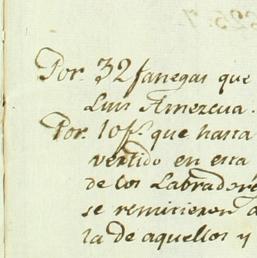 Por. 32 fanegas que
Luis Amezcua.
Por. 10 f.s que hasta
vertido en esta
de los Labradore
se remitieron a
la de aquellos y